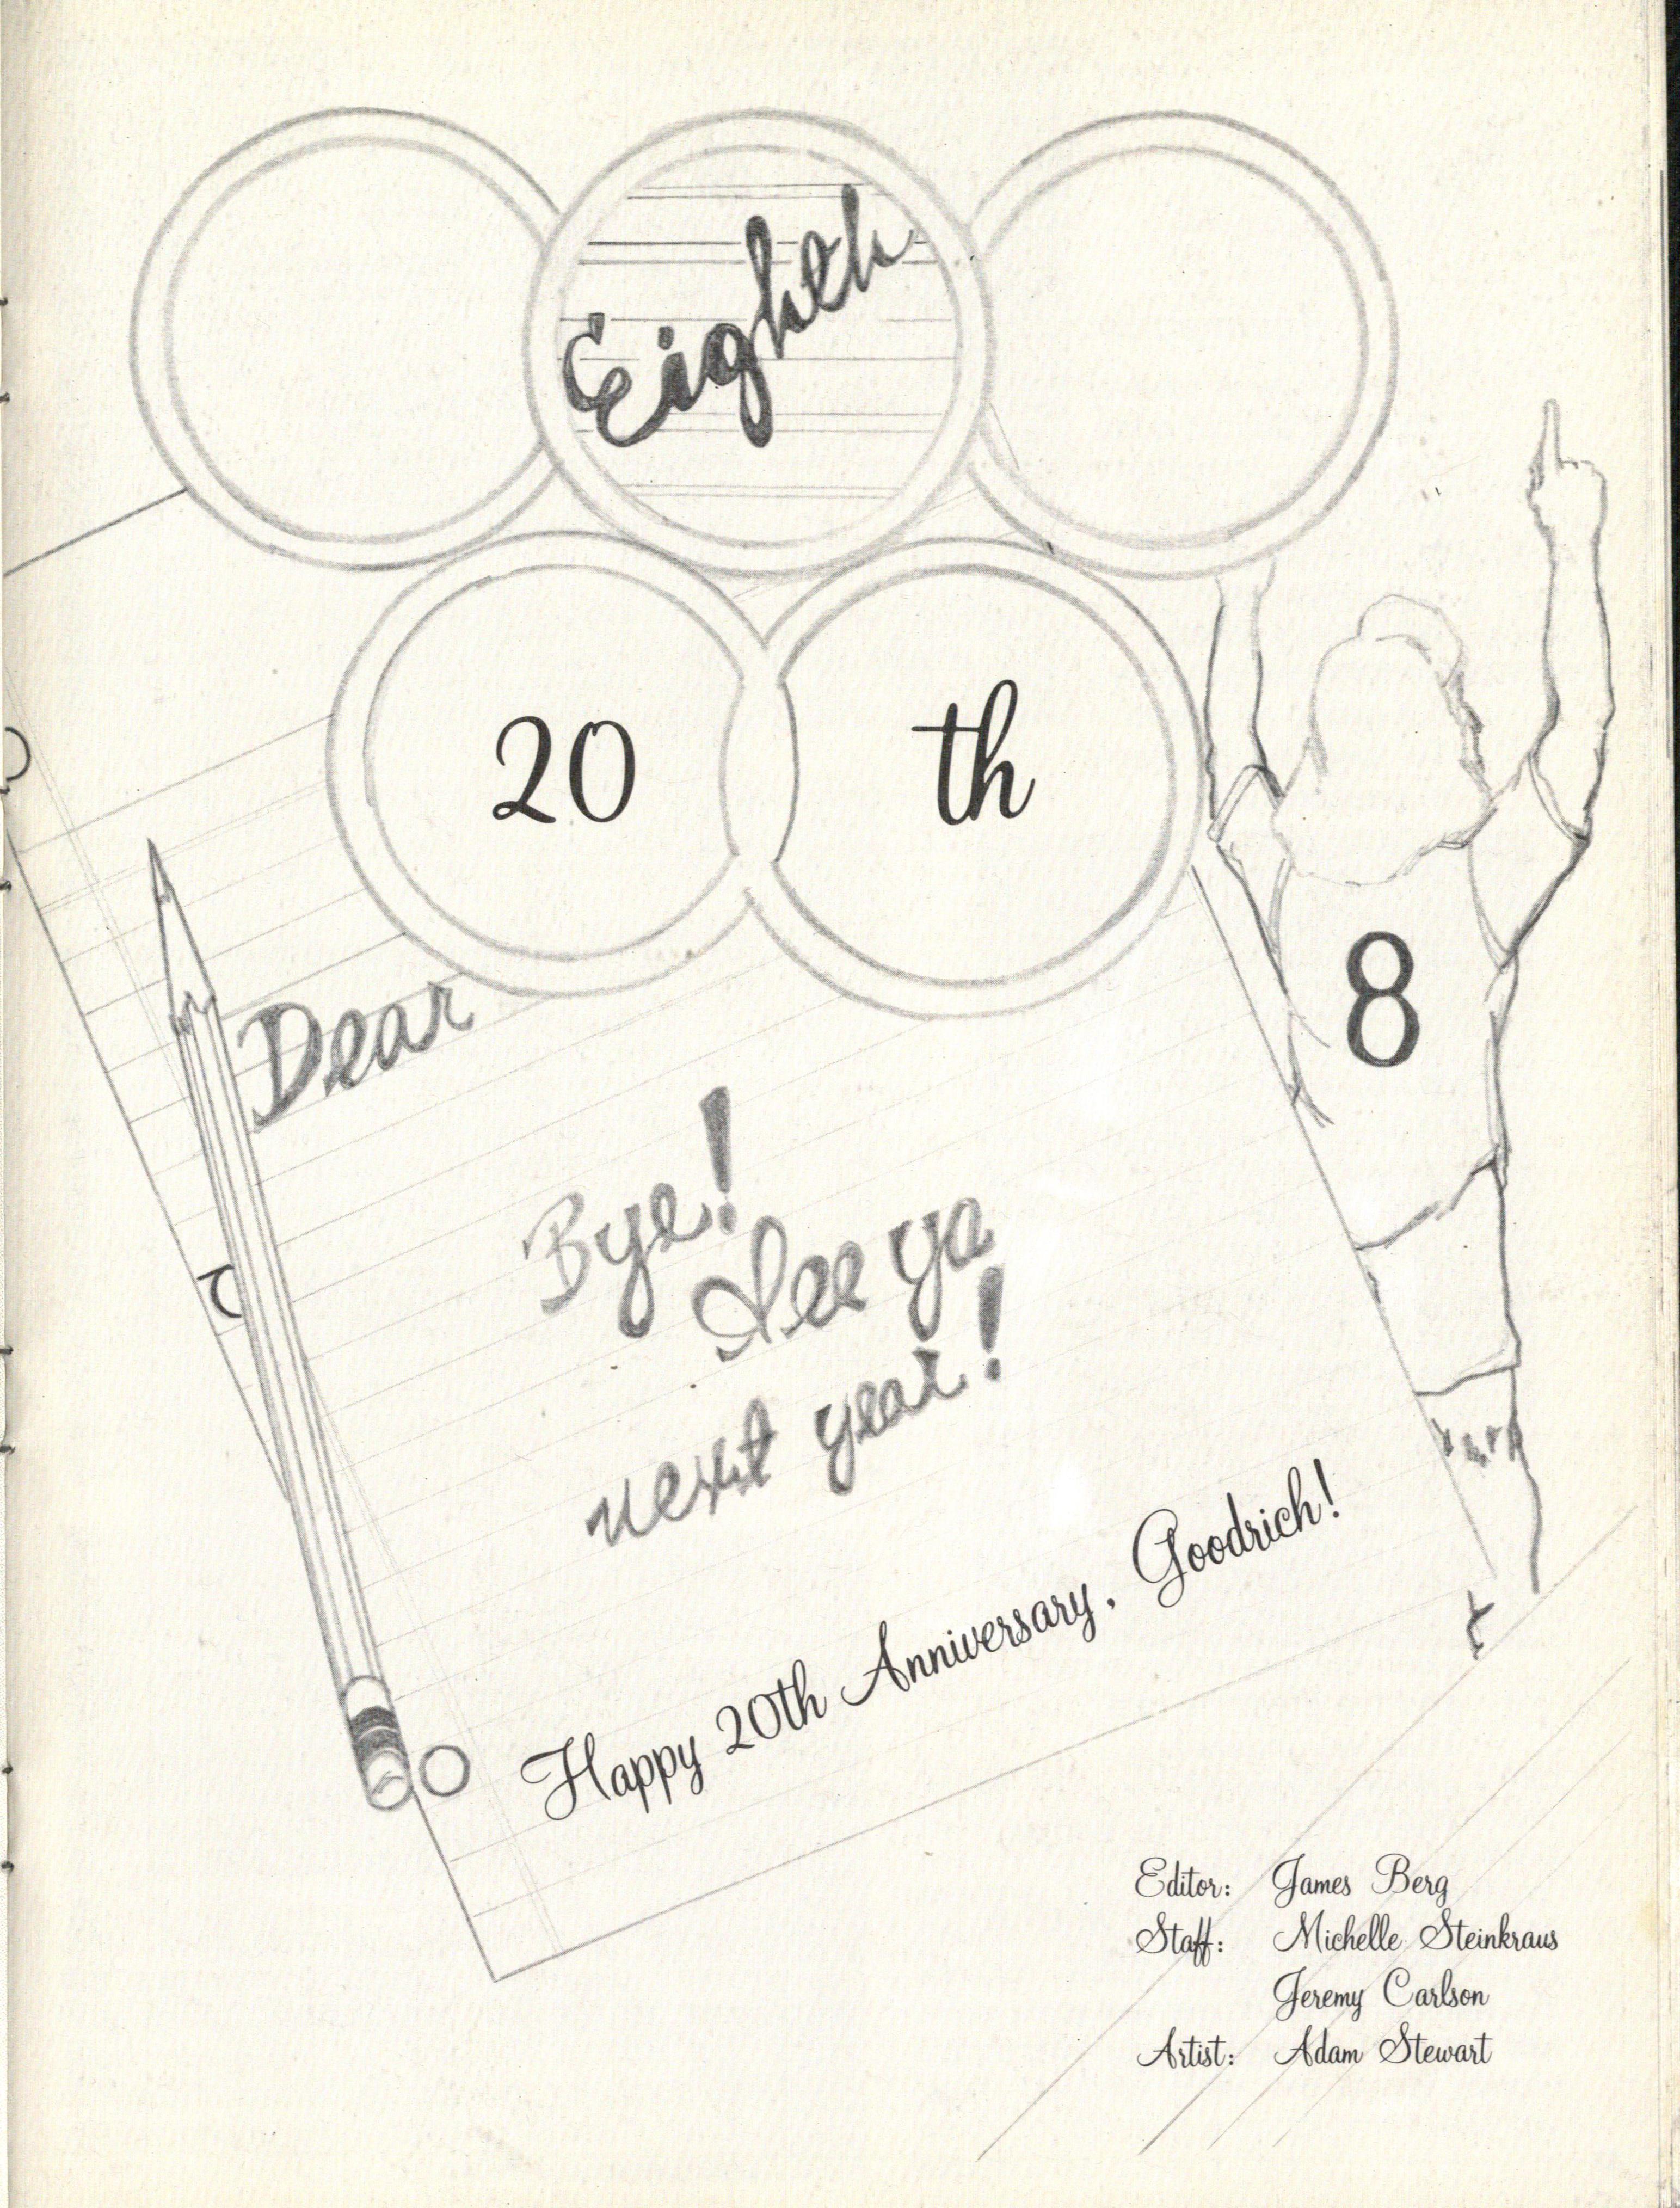 Eighth
20 th
Dear
8
Bye!
See ya
next year!
Happy 20th Anniversary, Goodrich!
Editor: James Berg
Staff: Michelle Steinkraus
Jeremy Carlson
Artist: Adam Stewart